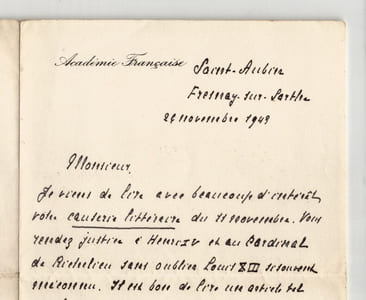 Académie Française
Saint-Aubin
Fresnay-sur-Sarthe
novembre 1949
Monsieur,
Je viens de lire avec beaucoup d'intérêt
votre causerie littéraire du 11 novembre. Vous
rendez justice à Henri IV et au Cardinal
de Richelieu sans oublier Louis XIII si souvent
méconnu. Il est bon de lire un article tel